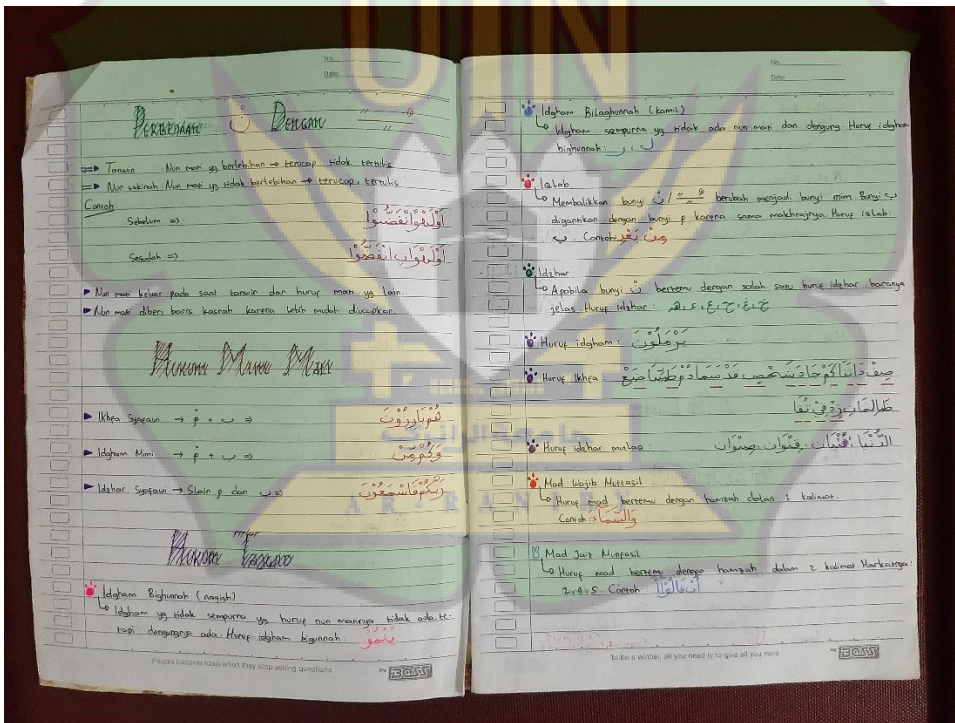 UIN
No.
Date:
PERBEDAAN نْ DENGAN ـًـ ـٍـ ـٌـ
=> Tanwin : Nun mati yg berlebihan → terucap tidak tertulis
=> Nun sakinah : Nun mati yg tidak berlebihan → terucap, tertulis
Contoh
Sebelum =>
Sesudah =>
Nun mati keluar pada saat tanwin dan huruf mati yg lain.
Nun mati diberi baris kasrah karena lebih mudah diucapkan.
Hukum Mim Mati
Ikhfa Syafawi → مْ + ب =>
Idgham Mimi → مْ + ب => وَكُمْ مِّنْ
Idzhar Syafawi → Slain م dan ب => رَبِّكُمْ فَاسْمَعُوْنَ
Hukum
Idgham Bighunnah (naqish)
Idgham yg tidak sempurna yg huruf nun matinya tidak ada, te-
tapi dengungnya ada. Huruf idgham bigunnah: يَنْمُوْ
People become fools when they stop asking questions
by BOSS
No.
Date:
Idgham Bilaghunnah (kamil)
Idgham sempurna yg tidak ada nun mati dan dengung. Huruf idgham
bighunnah: ل، ر
Iqlab
Membalikkan bunyi نْ / ـًـ ـٍـ ـٌـ berubah menjadi bunyi mim. Bunyi ب
digantikan dengan bunyi م karena sama makhrajnya. Huruf iqlab:
ب. Contoh: مِنْ بَعْدِ
Idzhar
Apabila bunyi نْ bertemu dengan salah satu huruf idzhar, bacanya
jelas. Huruf idzhar : خ، غ، ح، ع، ء، هـ
Huruf idgham : يَرْمَلُوْنَ
Huruf Ikhfa صِفْ ذَا ثَنَا كَمْ جَادَ شَخْصٌ قَدْ سَمَا دُمْ طَيِّبًا ضَعْ
ظَالِمًا زِدْ فِيْ تُقًا
Huruf idzhar mutlaq : الدُّنْيَا، بُنْيَان، قِنْوَان، صِنْوَان
Mad Wajib Muttasil
Huruf mad bertemu dengan hamzah dalam 1 kalimat.
Contoh: وَالسَّمَاءِ
Mad Jaiz Munfasil
Huruf mad bertemu dengan hamzah dalam 2 kalimat. Harkatnya:
2, 4, 5. Contoh:
To be a winner, all you need is to give all you have
by BOSS
جامعة الرانيري
AR-RANIRY